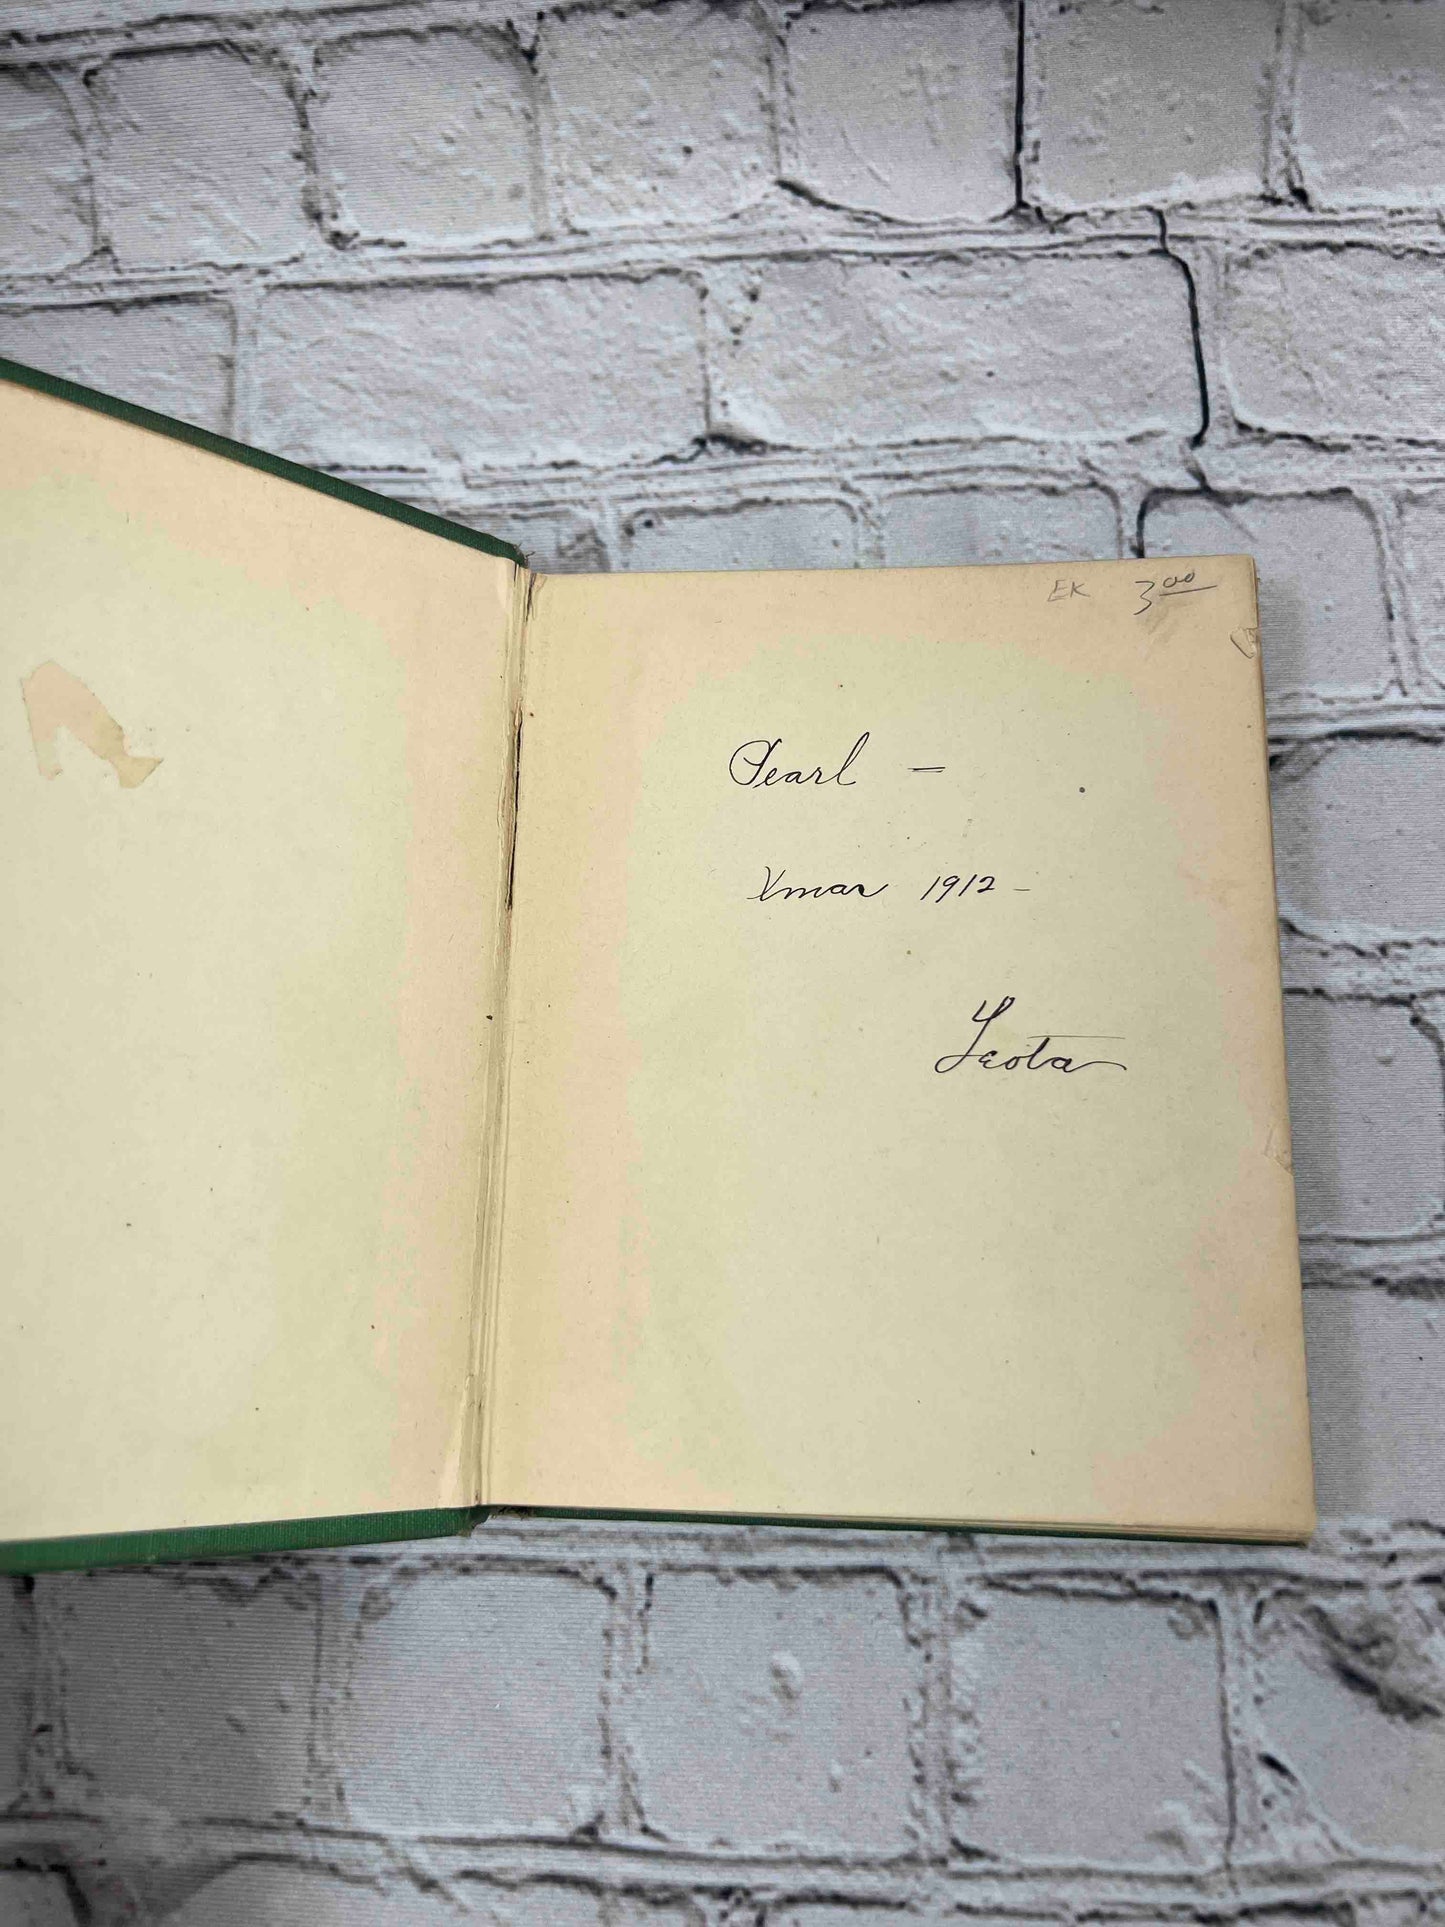 EK 3.00
Pearl =
Xmas 1912 -
Leota